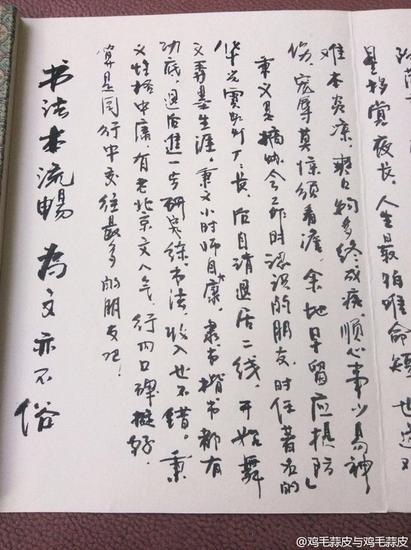 星移赏夜长。人生最怕唯命短也道
难本炎凉，爽口物多终成疾顺心事少易神
伤，宠辱莫惊须看淡，余地早留应提防」
秉义是搞晚会工作时认识的朋友，时任著名的
华光霓虹灯厂厂长，后自请退居二线，开始舞
文弄墨生涯。秉义小时师自康，隶书楷书都有
功底，退后进一步研究练书法，收入也不错。秉
义性格中庸，有老北京文人气，行内口碑挺好，
算是同行中交往最多的朋友吧！
书法本流畅 为文亦不俗
@鸡毛蒜皮与鸡毛蒜皮